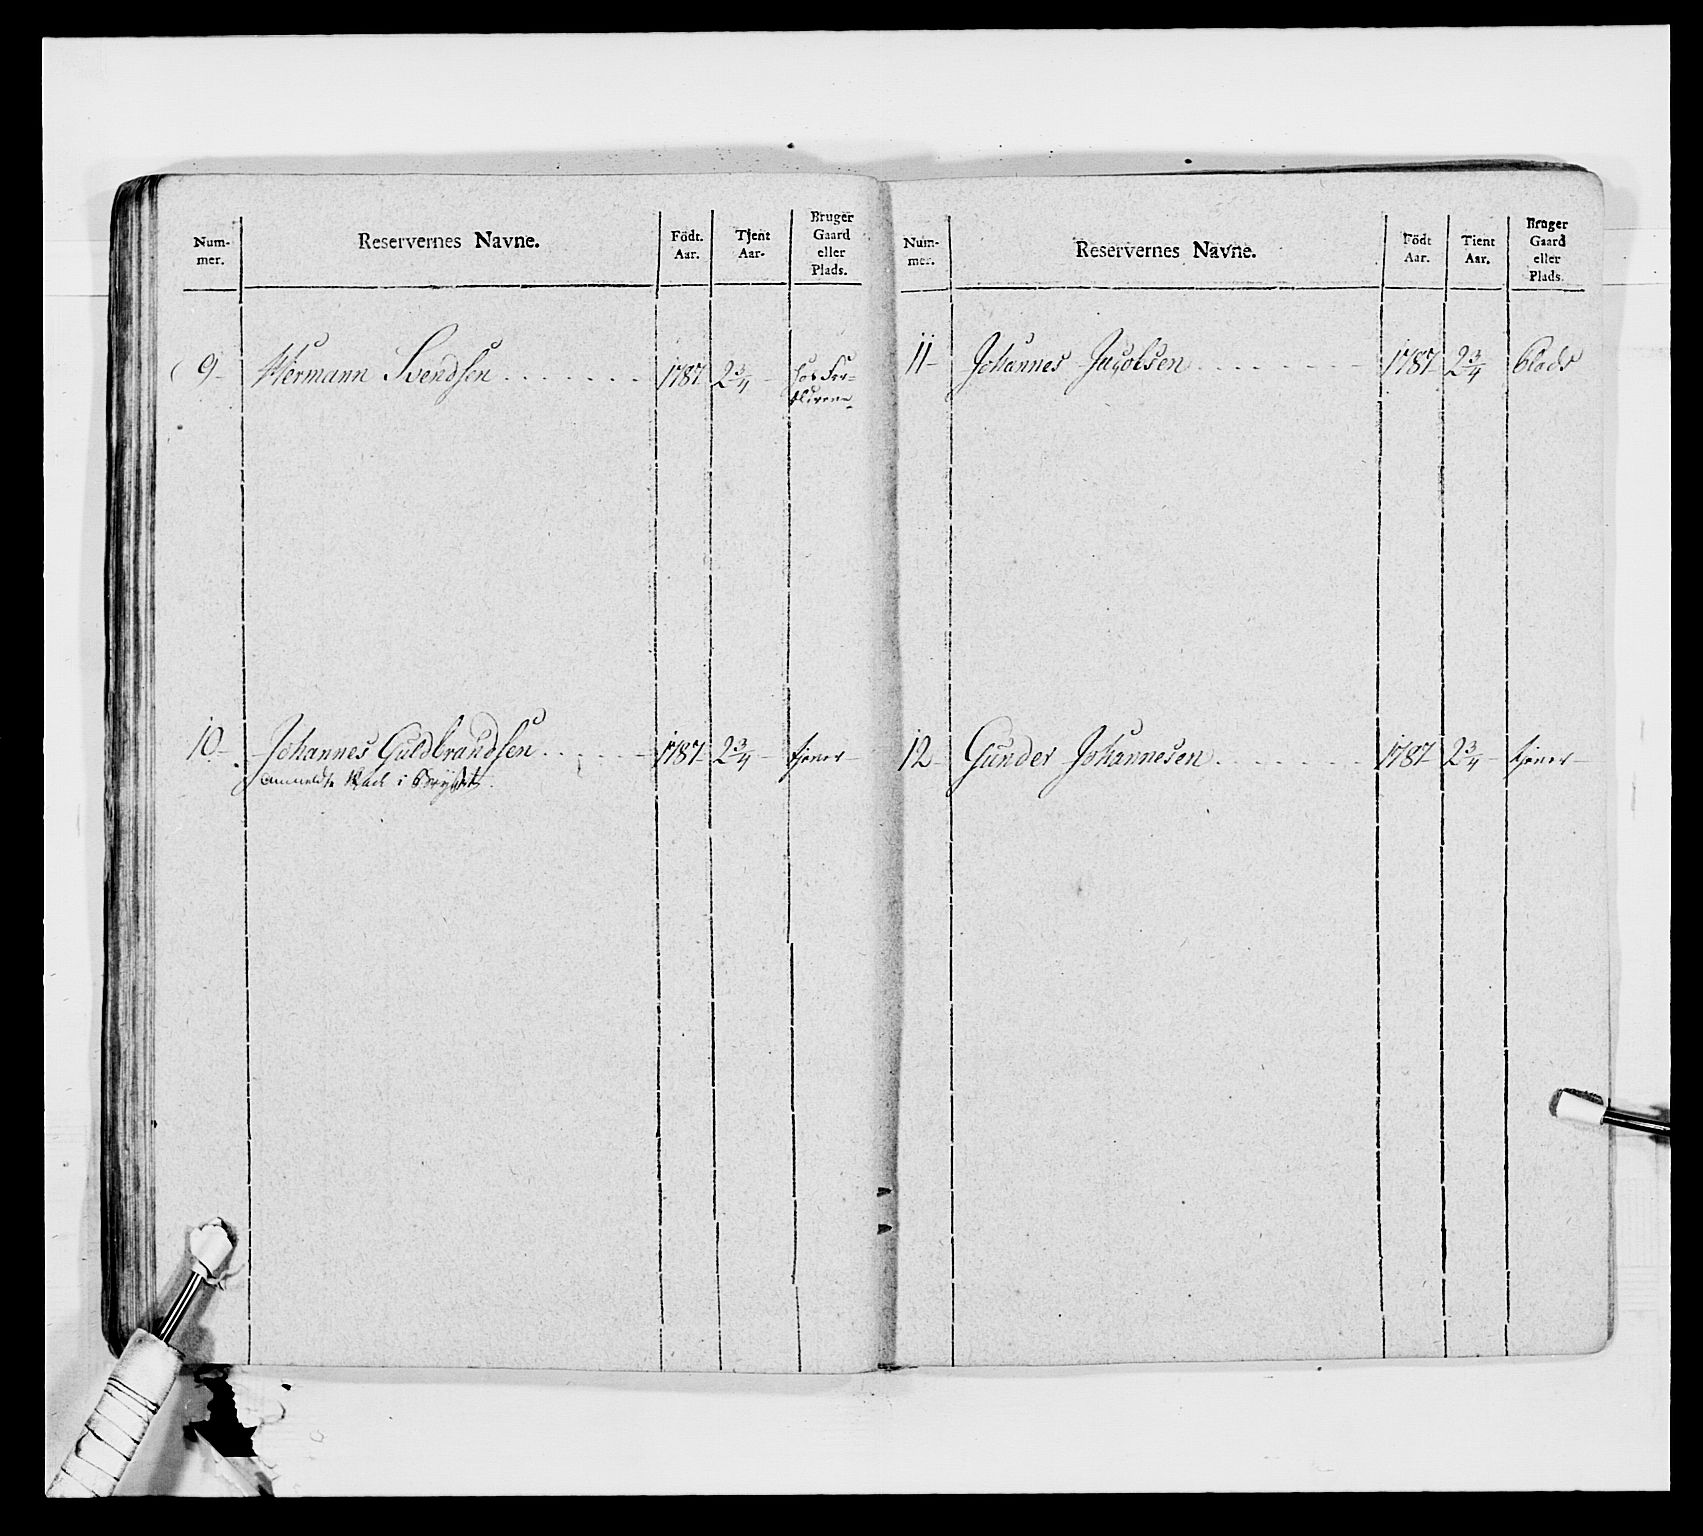 Num-
mer.
Reservernes Navne.
Födt.
Aar.
Tjent
Aar.
Bruger
Gaard
eller
Plads.
9- Hermann Svendsen . . . . . . . 1787 2 3/4 - hos For-
ældrene
10- Johannes Guldbrandsen . . . . . 1787 2 3/4 - tjener-
anmeldte i Brystet.
Num-
mer.
Reservernes Navne.
Födt
Aar.
Tient
Aar.
Bruger
Gaard
eller
Plads.
11- Johannes Jacobsen . . . . . . . 1787 2 3/4 Plads
12- Gunder Johannesen . . . . . . . 1787 2 3/4 - tjener-